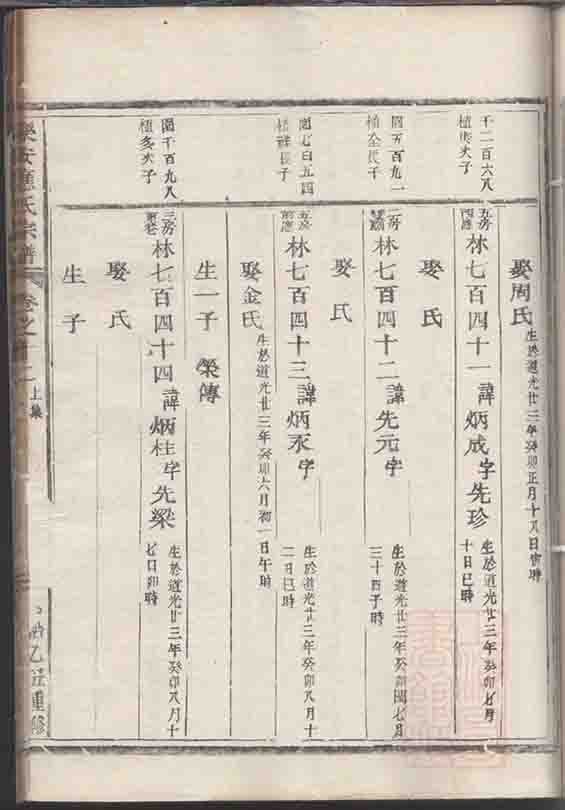 千二百六八
植
次子
娶周氏 生於道光廿三年癸卯正月十八日寅時
五房
林七百四十一 諱炳成 字先珍 生於道光廿三年癸卯七月
十日巳時
娶氏
五百九一
長子
二房
林七百四十二 諱先元 字 生於道光廿三年癸卯閏七月
三十日子時
娶氏
七百五四
長子
五房
林七百四十三 諱炳永 字 生於道光廿三年癸卯八月十
二日巳時
娶金氏 生於道光廿三年癸卯六月初一日午時
生一子 榮傳
千百九八
植 次子
三房
林七百四十四 諱炳桂 字先梁 生於道光廿三年癸卯八月十
七日卯時
娶氏
生子
樂安 氏宗譜 卷之十二 上集
乙 重修